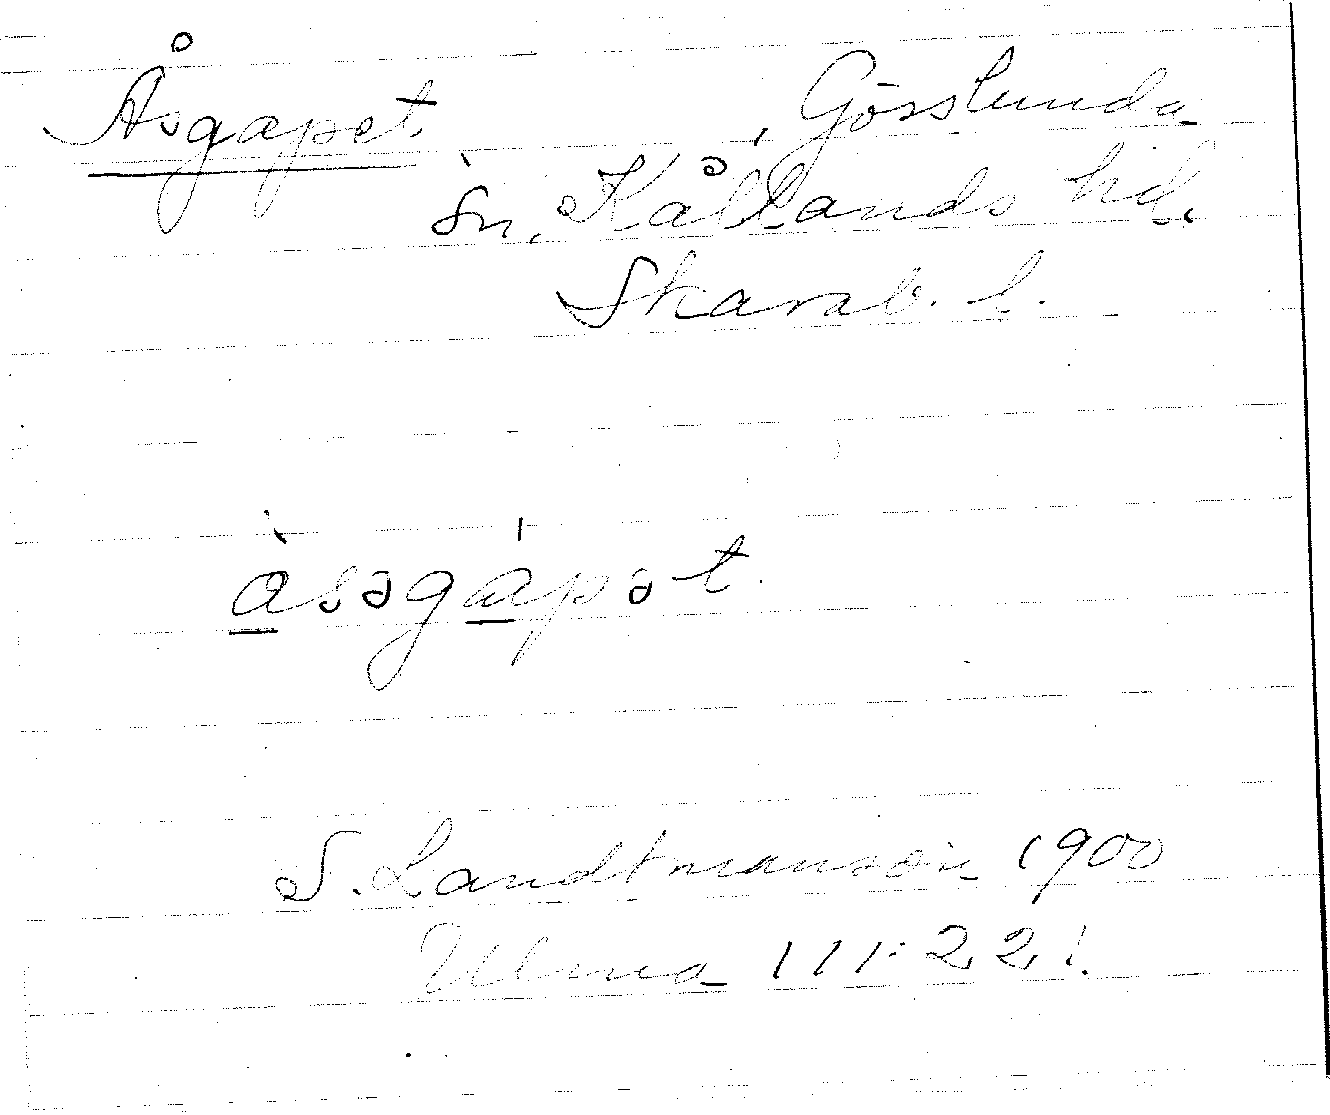 Åsgapet. Gösslunda
sn, Kållands hd.
Skarab. l.
à̲səgá̲pət.
S. Landtmanson 1900
Ulma 111:221.